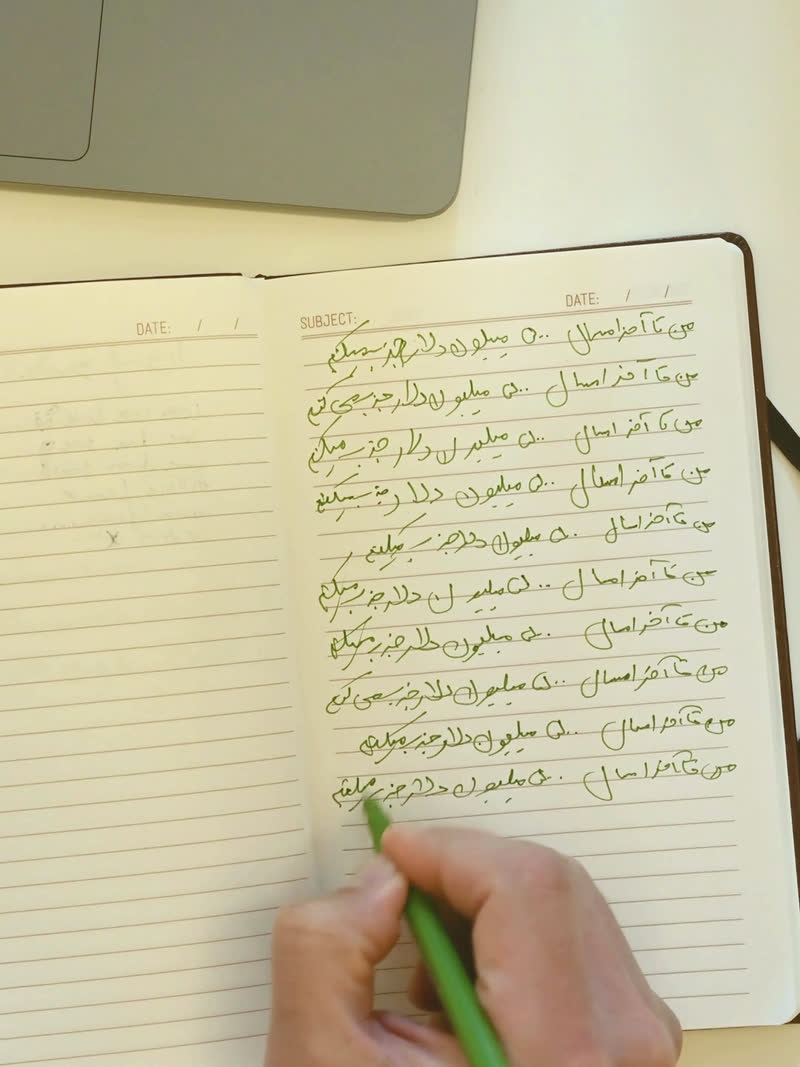 DATE: / /
SUBJECT:
DATE: / /
من تا آخر امسال ۵۰۰ میلیون دلار جذب میکنم
من تا آخر امسال ۵۰۰ میلیون دلار جذب می کنم
من تا آخر امسال ۵۰۰ میلیون دلار جذب میکنم
من تا آخر امسال ۵۰۰ میلیون دلار جذب میکنم
من تا آخر امسال ۵۰۰ میلیون دلار جذب میکنم
من تا آخر امسال ۵۰۰ میلیون دلار جذب میکنم
من تا آخر امسال ۵۰۰ میلیون دلار جذب میکنم
من تا آخر امسال ۵۰۰ میلیون دلار جذب می کنم
من تا آخر امسال ۵۰۰ میلیون دلار جذب میکنم
من تا آخر امسال ۵۰۰ میلیون دلار جذب میکنم